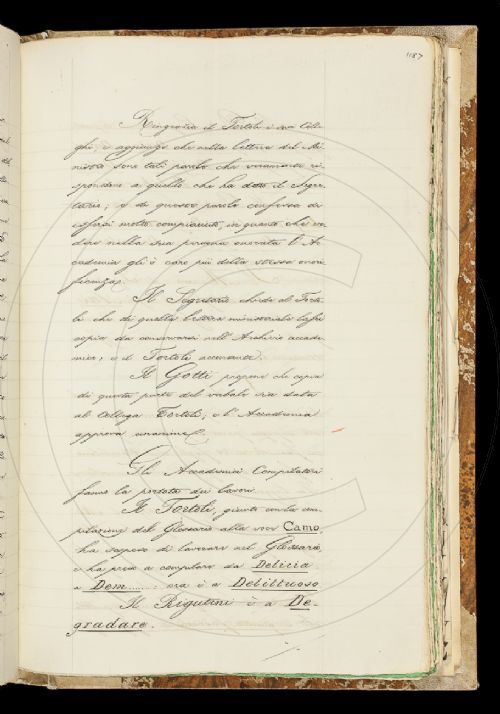 1187
Ringrazia il Tortoli i suoi Colle-
ghi, e aggiunge che nella lettera del Mi-
nistro sono tali parole che veramente ri-
spondono a quello che ha detto il Segre-
tario; e di queste parole confessa di
essersi molto compiaciuto, in quanto che ve-
dere nella sua persona onorata l'Ac-
cademia gli è caro più della stessa onori-
ficenza.
Il Segretario chiede al Torto-
li che di quella lettera ministeriale lasci
copia da conservarsi nell'Archivio accade-
mico; e il Tortoli acconsente.
Il Gotti propone che copia
di questa parte del verbale sia data
al Collega Tortoli, e l'Accademia
approva unanime.
Gli Accademici Compilatori
fanno la portata dei lavori.
Il Tortoli, giunto con la com-
pilazione del Glossario alla voce Camo,
ha sospeso di lavorare nel Glossario,
e ha preso a compilare da Delicia
a Dem........ ora è a Delittuoso
Il Rigutini è a De-
gradare.